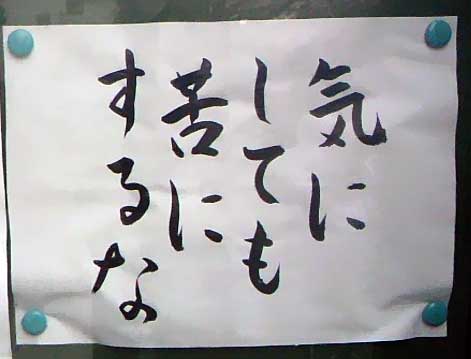 気に
しても
苦に
するな